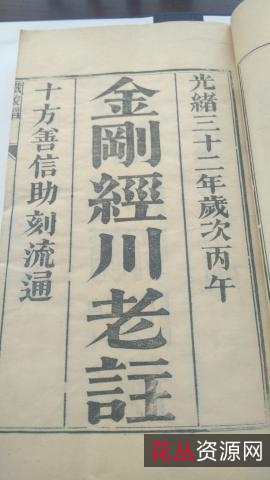 光緒三十二年歲次丙午
金剛經川老註
十方善信助刻流通
花丛资源网